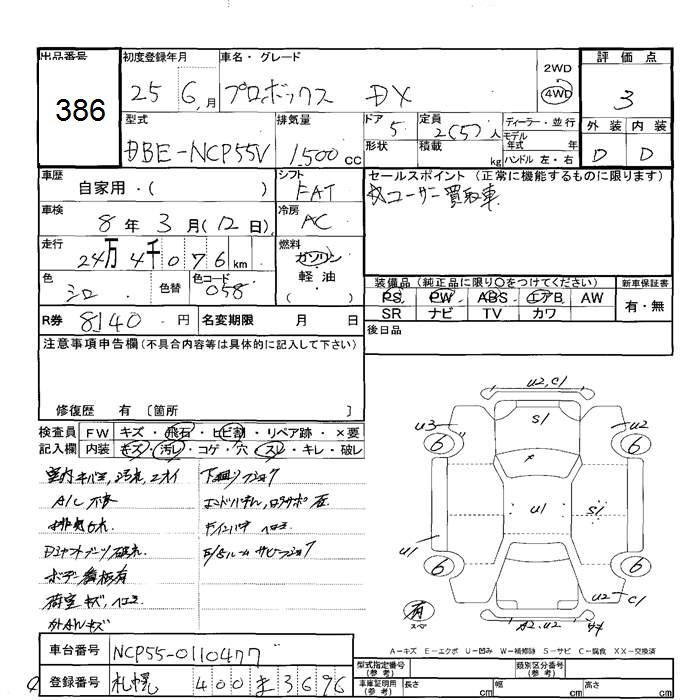 出品番号 初度登録年月 車名・グレード 2WD 評価点
386 25 6月 プロボックス DX 4WD 3
型式 排気量 ドア 5 定員 2(5)人 ディーラー・並行 外装 内装
DBE-NCP55V 1500cc 形状 積載 kg モデル年式 年 D D
ハンドル 左・右
車歴 自家用・( ) シフト FAT セールスポイント (正常に機能するものに限ります)
車検 8年 3月(12日) 冷房 AC ユーザー買取車
走行 24万4千076km 燃料 ガソリン・軽油・( )
色 シロ 色替 色コード 058 装備品(純正品に限り○をつけてください) 新車保証書
PS PW ABS エアB AW 有・無
SR ナビ TV カワ
R券 8140円 名変期限 月 日 後日品
注意事項申告欄(不具合内容等は具体的に記入して下さい)
修復歴 有 〔箇所 〕
検査員 FW キズ・飛石・ヒビ割・リペア跡・×要
記入欄 内装 キズ・汚レ・コゲ・穴・スレ・キレ・破レ
下廻りサビ
A/C不良
排気モレ
ボデー看板有
荷室キズ、ヘコミ
外AWキズ
U2,C1
S1
U3 U2
6 6
U1 S1
U1
6 6
U2 C1
有 A2,U2
スペア
A-キズ E-エクボ U-凹み W-補修跡 S-サビ C-腐食 XX-交換済
車台番号 NCP55-0110477
型式指定番号(参考) 類別区分番号(参考)
登録番号 札幌 400 ま 3696
車庫証明用(参考) 長さ cm 幅 cm 高さ cm